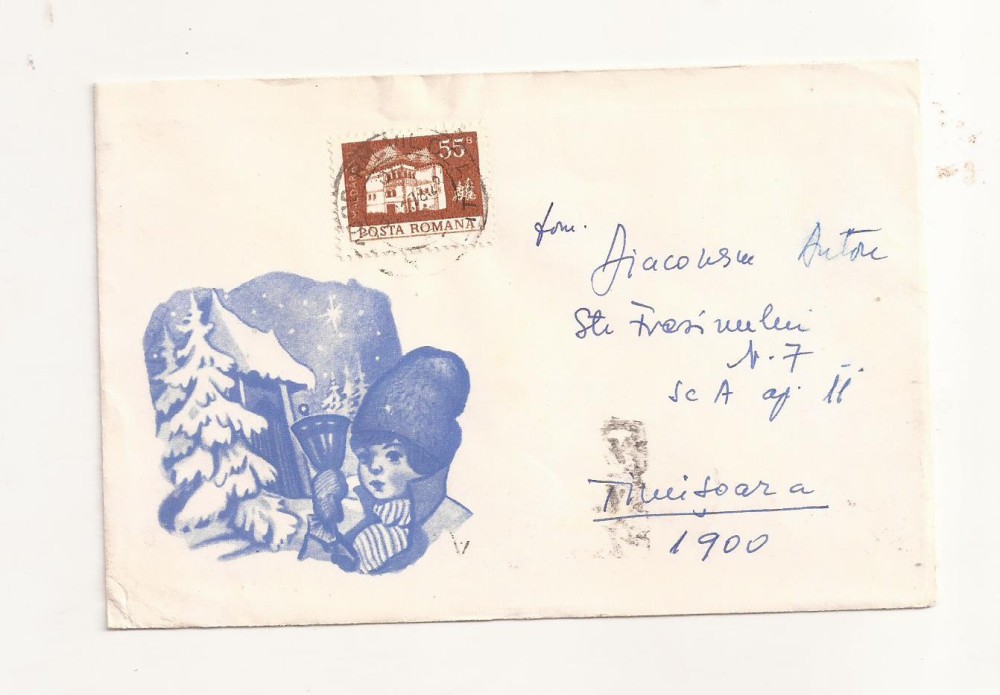 55 B
POSTA ROMANA
Dom. Diaconescu Anton
Str Frasinului
Nr. 7
Sc A ap 11
Timișoara
1900